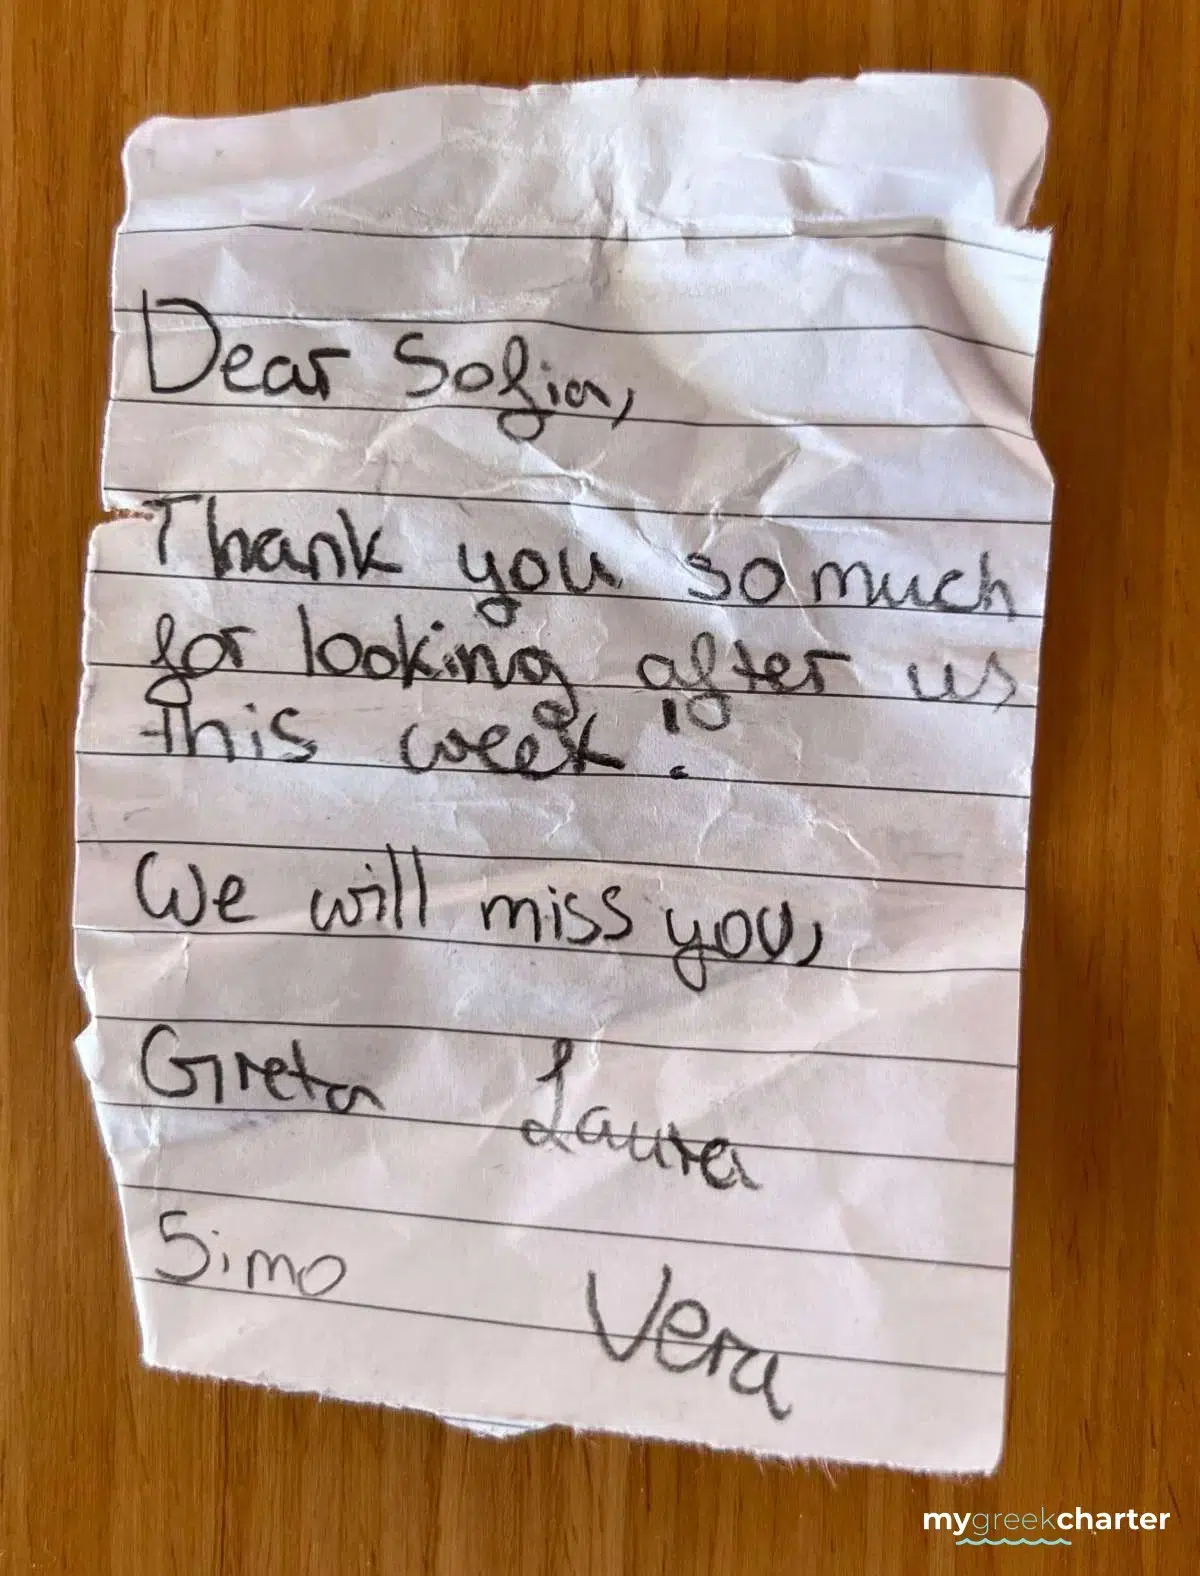 Dear Sofia,
Thank you so much
for looking after us
this week!
We will miss you,
Greta Laura
Simo Vera
mygreekcharter